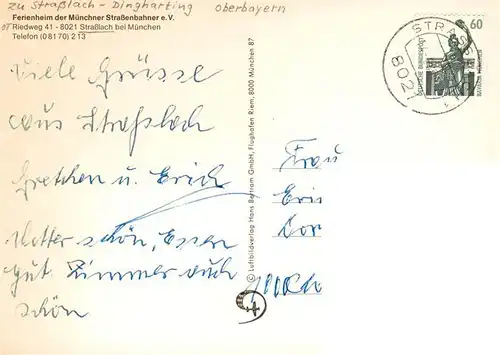 zu Straßlach - Dingharting Oberbayern
Ferienheim der Münchner Straßenbahner e.V.
Riedweg 41 - 8021 Straßlach bei München
Telefon (0 81 70) 2 13
Viele Grüsse
aus Straßlach
Gretchen u. Erich
Wetter schön, Essen
gut Zimmer auch
schön
© Luftbildverlag Hans Bertram GmbH, Flughafen Riem, 8000 München 87
STRASS
8021
60
DEUTSCHE BUNDESPOST
BAVARIA MÜNCHEN
Frau